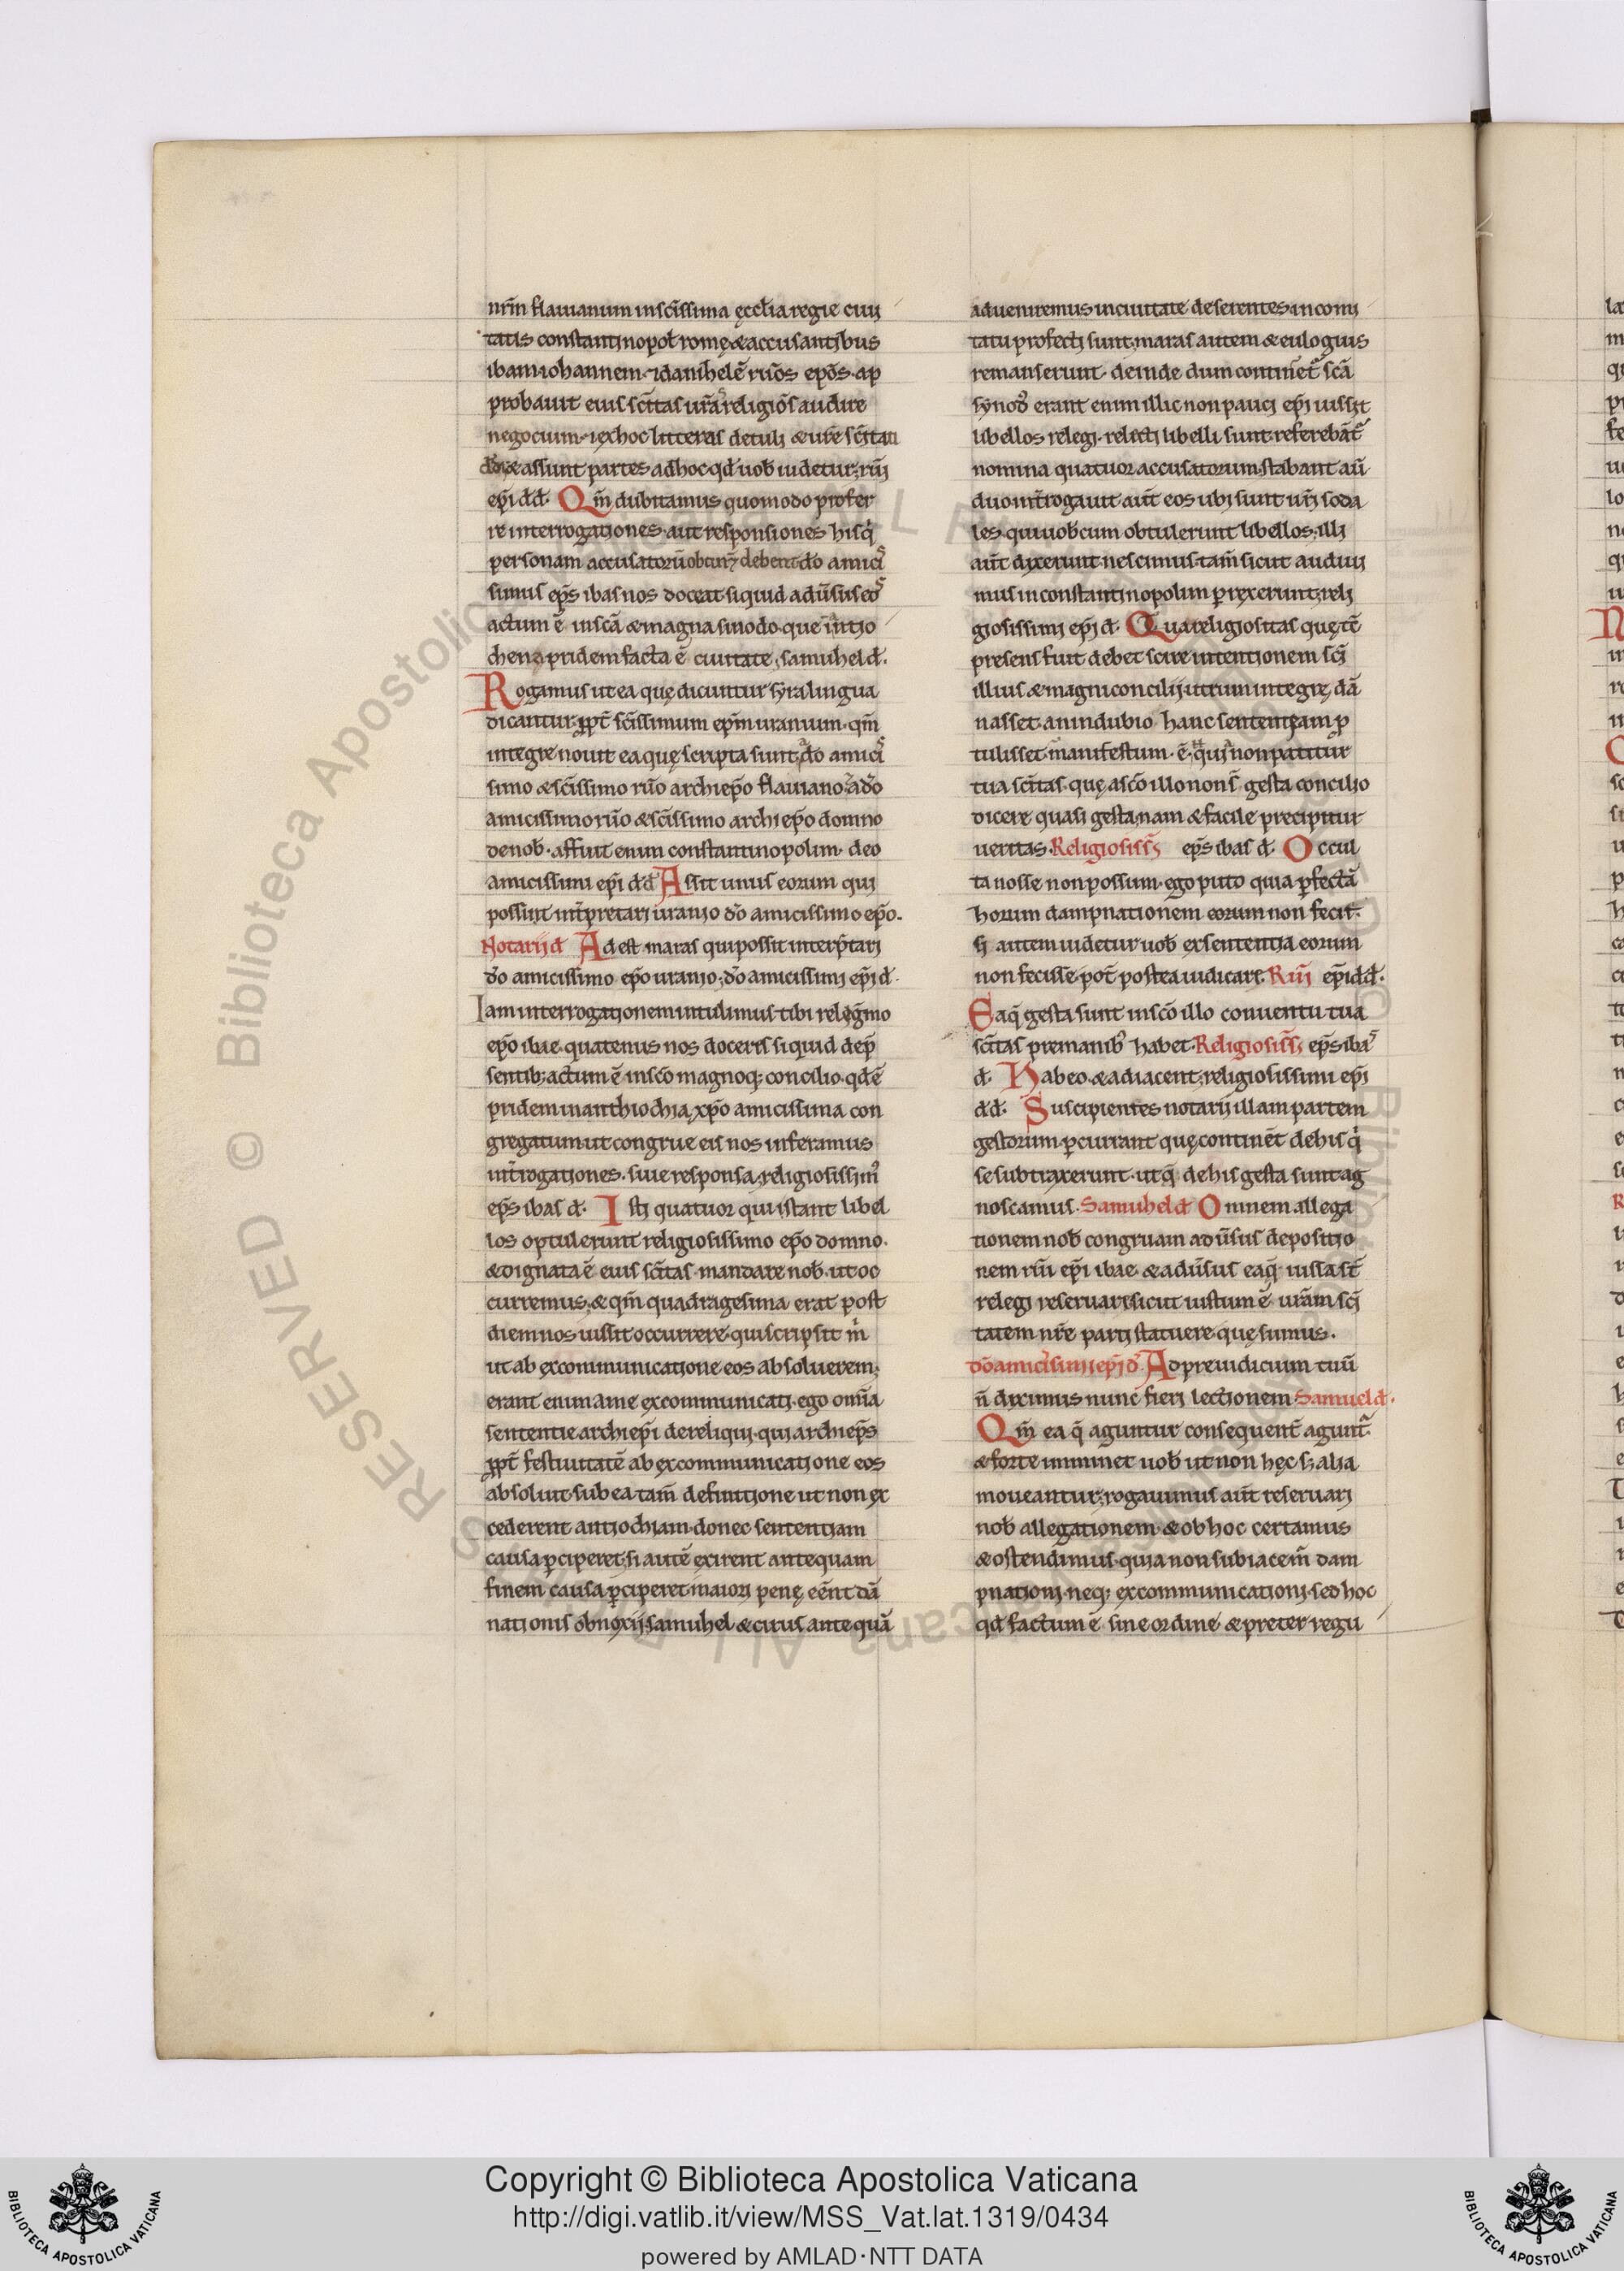 nr̄m flauianum in sc̄issima ęccl̄ia regie ciui
tatis constantinopol̄ romę & accusantibus
ibam iohannem ⁊ danihelē ru̅os ep̄os ap
probauit eius sc̄itas ur̄a religiōs audire
negocium ⁊ ex hoc litteras detuli & ur̄e sc̄itati
assunt partes ad hoc qd̄ uob̄ uidetur; ru̅i
ep̄i d̄d̄. Qm̄ dubitamus quomodo profer
re interrogationes aut responsiones his q̄
personam accusatorū obtin̄ debent d̄o amici
simus ep̄s ibas nos doceat si quid adu̅sus eos
actum ē in sc̄a & magna sinodo que in antio
chena pridem facta ē ciuitate; samuhel d̄.
Rogamus ut ea quę dicuntur syra lingua
dicantur; ppt̄ sc̄issimum ep̄m uranium qm̄
integre nouit ea quę scripta sunt a d̄o amicis
simo & sc̄issimo ru̅o archiep̄o flauiano & a d̄o
amicissimo ru̅o & sc̄issimo archiep̄o domno
de nob̄ affuit enim constantinopolim deo
amicissimi ep̄i d̄d̄ Assit unus eorum qui
possint int̄pretari uranio d̄o amicissimo ep̄o.
Notarij d̄ Adest maras qui possit interp̄tari
d̄o amicissimo ep̄o uranio; d̄o amicissimi ep̄i d̄.
Iam interrogationem intulimus tibi relęgmo
ep̄o ibae quatenus nos doceris si quid de p̄
sentib; actum ē in sc̄o magnoq; concilio qd̄ ē
pridem in anthiochia xp̄o amicissima con
gregatum ut congrue eis nos inferamus
int̄rogationes siue responsa; religiosissim̄
ep̄s ibas d̄. Isti quatuor qui istant libel
los optulerunt religiosissimo ep̄o domno.
& dignata ē eius sc̄itas mandare nob̄ ut oc
curremus; & qm̄ quadragesima erat post
diem nos iussit occurrere qui scripsit m̄
ut ab excommunicatione eos absoluerem;
erant enim a me excommunicati ego om̄ia
sententie archiep̄i dereliqui qui archiep̄s
ppt̄ festiuitatē ab excommunicatione eos
absoluit sub ea tam̄ definitione ut non ex
cederent antiochiam donec sententiam
causa p̄ciperet; si autē exirent antequam
finem causa p̄ciperet maiori penę eēnt dā
nationis obnoxij; samuhel & cirus antequā
adueniremus in ciuitate deserentes in comi
tatu profecti sunt; maras autem & eulogius
remanserunt deinde dum contin̄et sc̄a
synod̄ erant enim illic non pauci ep̄i iussit
libellos relegi relecti libelli sunt referebāt̄
nomina quatuor accusatorum stabant au̅
duo int̄rogauit aut̄ eos ubi sunt ur̄i soda
les qui uobcum obtulerunt libellos; illi
aut̄ dixerunt nescimus tam̄ sicut audiui
mus in constantinopolim p̄rexerunt; reli
giosissimi ep̄i d̄. Qua religiositas quę tē
presens fuit debet scire intentionem sc̄i
illius & magni concilij utrum integrę dā
nasset an in dubio hanc sententiam p
tulisset manifestum ē qui non patitur
tua sc̄itas quę a sc̄o illo non s̄ gesta concilio
dicere quasi gesta; nam & facile precipitur
ueritas Religiosiss̄ ep̄s ibas d̄. Occul
ta nosse non possum ego puto quia p̄fectā
horum dampnationem eorum non fecit.
si autem uidetur uob̄ ex sententia eorum
non fecisse pot̄ postea iudicare. Ru̅i ep̄i d̄d̄.
Ea q̄ gesta sunt in sc̄o illo conuentu tua
sc̄itas pre manib̄ habet. Religiosiss̄ ep̄s ibas
d̄. Habeo & adiacent; religiosissimi ep̄i
d̄d̄. Suscipientes notarij illam partem
gestorum p̄currant quę continēt de his q̄
se subtraxerunt ut q̄ de his gesta sunt ag
noscamus. Samuhel d̄ Omnem allega
tionem nob̄ congruam adu̅sus depositio
nem ru̅i ep̄i ibae & adu̅sus ea q̄ iussa st̄
relegi reseruari sicut iustum ē ur̄am sc̄i
tatem nr̄e parti statuere quęsumus.
d̄o amicissimi ep̄i d̄. Ad preiudicium tuū
n̄ diximus nunc fieri lectionem Samuel d̄.
Qm̄ ea q̄ aguntur consequent̄ agunt̄
& forte imminet uob̄ ut non hęc s; alia
moueantur; rogauimus aut̄ reseruari
nob̄ allegationem & ob hoc certamus
& ostendimus quia non subiacem̄ dam
pnationi neq; excommunicationi sed hoc
qd̄ factum ē sine ordine & preter regu
Copyright © Biblioteca Apostolica Vaticana
http://digi.vatlib.it/view/MSS_Vat.lat.1319/0434
powered by AMLAD·NTT DATA